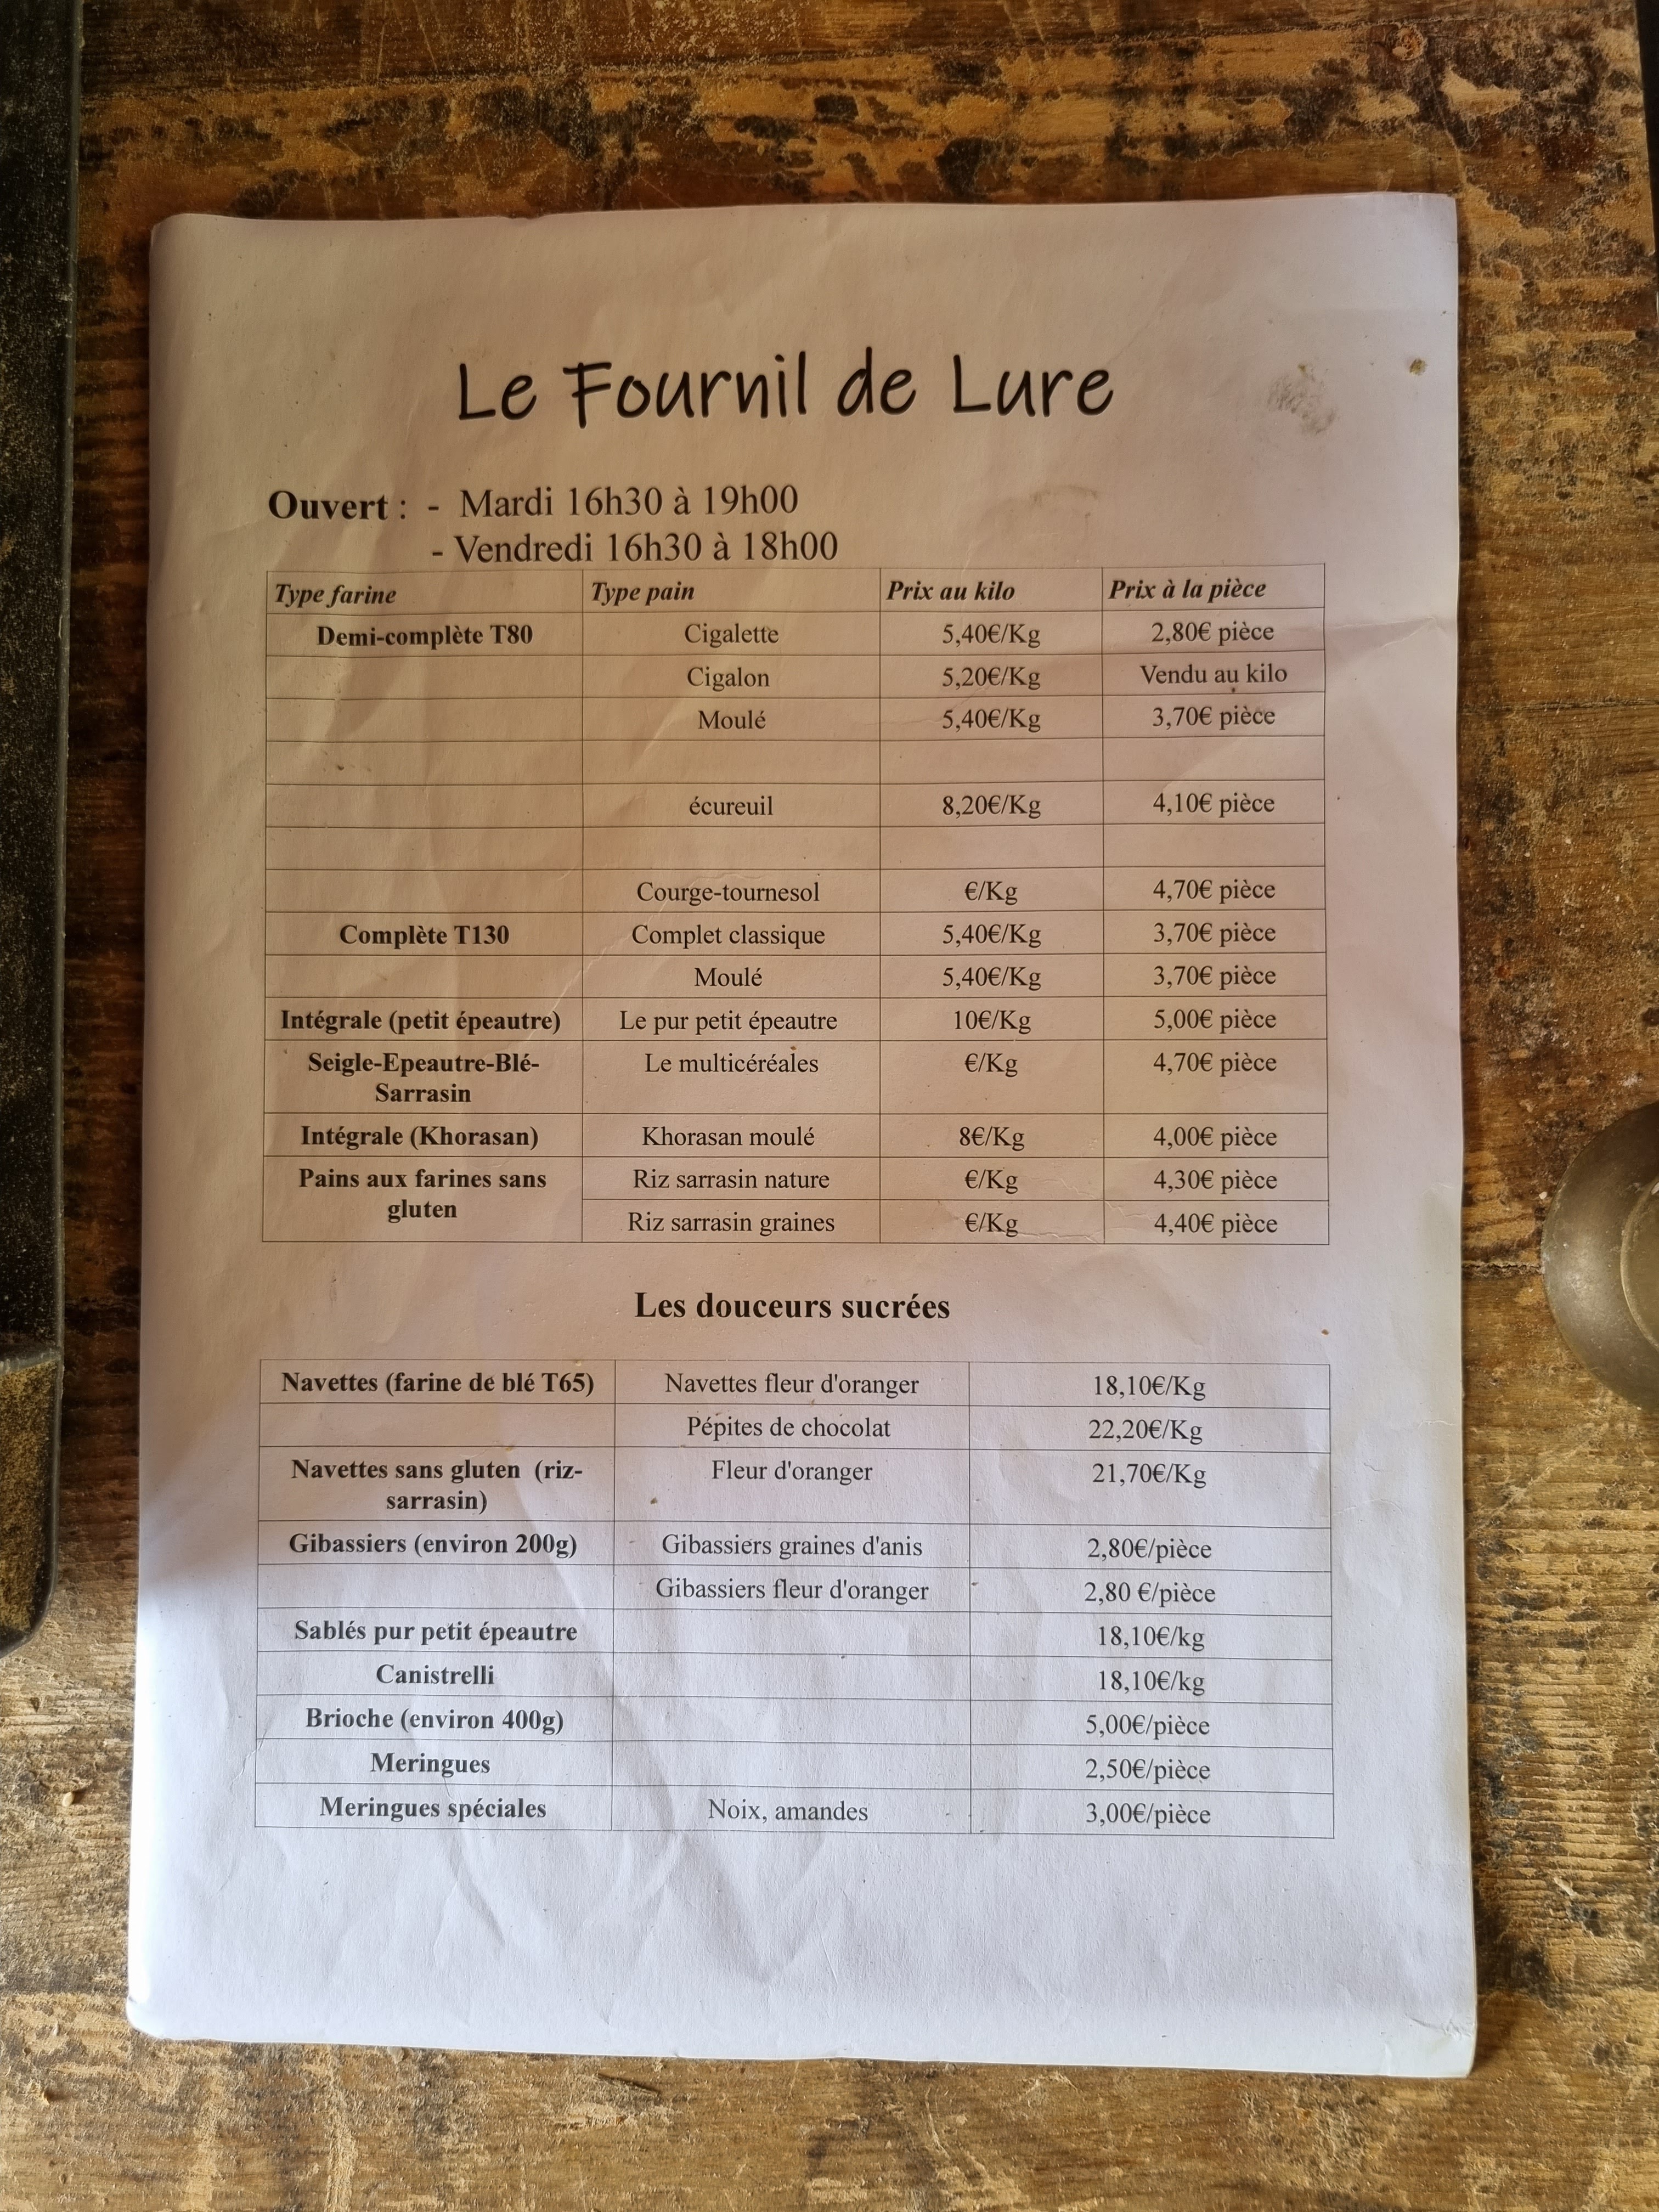 Le Fournil de Lure
Ouvert : - Mardi 16h30 à 19h00
- Vendredi 16h30 à 18h00
Type farine Type pain Prix au kilo Prix à la pièce
Demi-complète T80 Cigalette 5,40€/Kg 2,80€ pièce
Cigalon 5,20€/Kg Vendu au kilo
Moulé 5,40€/Kg 3,70€ pièce
écureuil 8,20€/Kg 4,10€ pièce
Courge-tournesol €/Kg 4,70€ pièce
Complète T130 Complet classique 5,40€/Kg 3,70€ pièce
Moulé 5,40€/Kg 3,70€ pièce
Intégrale (petit épeautre) Le pur petit épeautre 10€/Kg 5,00€ pièce
Seigle-Epeautre-Blé- Le multicéréales €/Kg 4,70€ pièce
Sarrasin
Intégrale (Khorasan) Khorasan moulé 8€/Kg 4,00€ pièce
Pains aux farines sans Riz sarrasin nature €/Kg 4,30€ pièce
gluten
Riz sarrasin graines €/Kg 4,40€ pièce
Les douceurs sucrées
Navettes (farine de blé T65) Navettes fleur d'oranger 18,10€/Kg
Pépites de chocolat 22,20€/Kg
Navettes sans gluten (riz- Fleur d'oranger 21,70€/Kg
sarrasin)
Gibassiers (environ 200g) Gibassiers graines d'anis 2,80€/pièce
Gibassiers fleur d'oranger 2,80 €/pièce
Sablés pur petit épeautre 18,10€/kg
Canistrelli 18,10€/kg
Brioche (environ 400g) 5,00€/pièce
Meringues 2,50€/pièce
Meringues spéciales Noix, amandes 3,00€/pièce